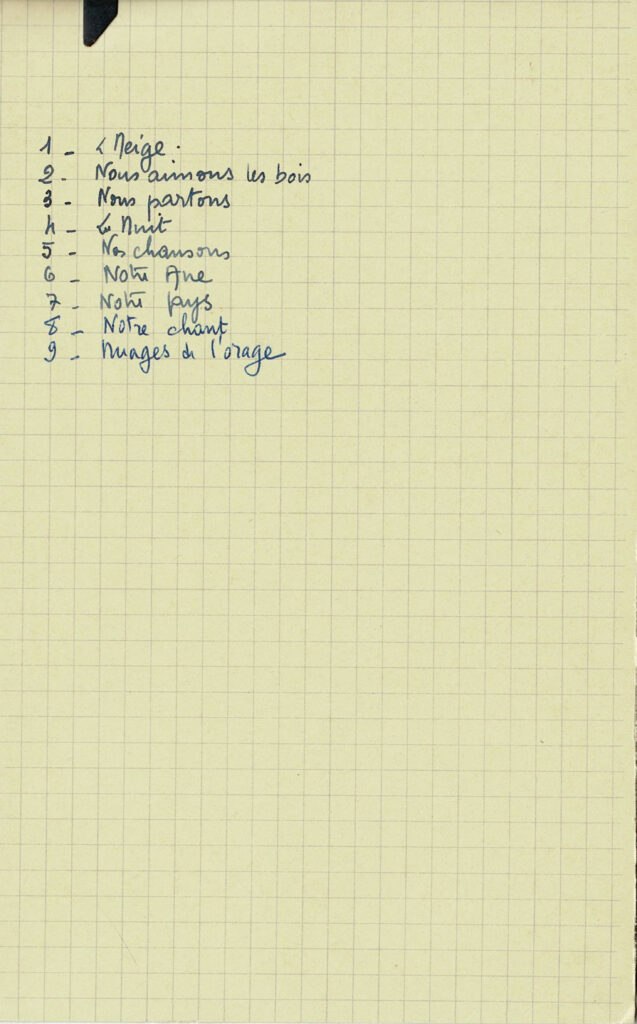 1 - La Neige.
2 - Nous aimons les bois
3 - Nous partons
4 - La Nuit
5 - Nos chansons
6 - Notre Ane
7 - Notre pays
8 - Notre chant
9 - Nuages de l'orage